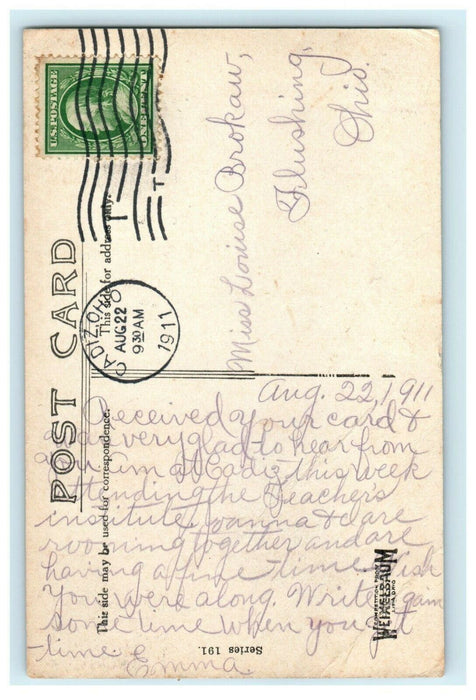 U.S. POSTAGE
ONE CENT
CADIZ, OHIO
AUG 22
9 30 AM
1911
POST CARD
This side for address only.
This side may be used for correspondence.
Miss Louise Brokaw,
Flushing,
Ohio.
Aug. 22, 1911
Received your card &
was very glad to hear from
you. I'm at Cadiz this week
attending the Teacher's
institute. Joanna & I are
rooming together and are
having a fine time. Wish
you were along. Write again
some time when you get
time. Emma
Series 191.
WEIXELBAUM
LIMA, OHIO